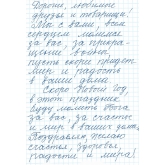 Дорогие, любимые
друзья и товарищи!
Мы с вами, всем
сердцем молимся
за вас, за прекра-
щение войны,
пусть скорее придет
мир и радость
в ваши дома.
Скоро Новый год,
в этот праздник
буду молить Бога
за вас, за счастье
и мир в ваших домах,
Поздравляю. Желаю
счастья, здоровья,
радости и мира!